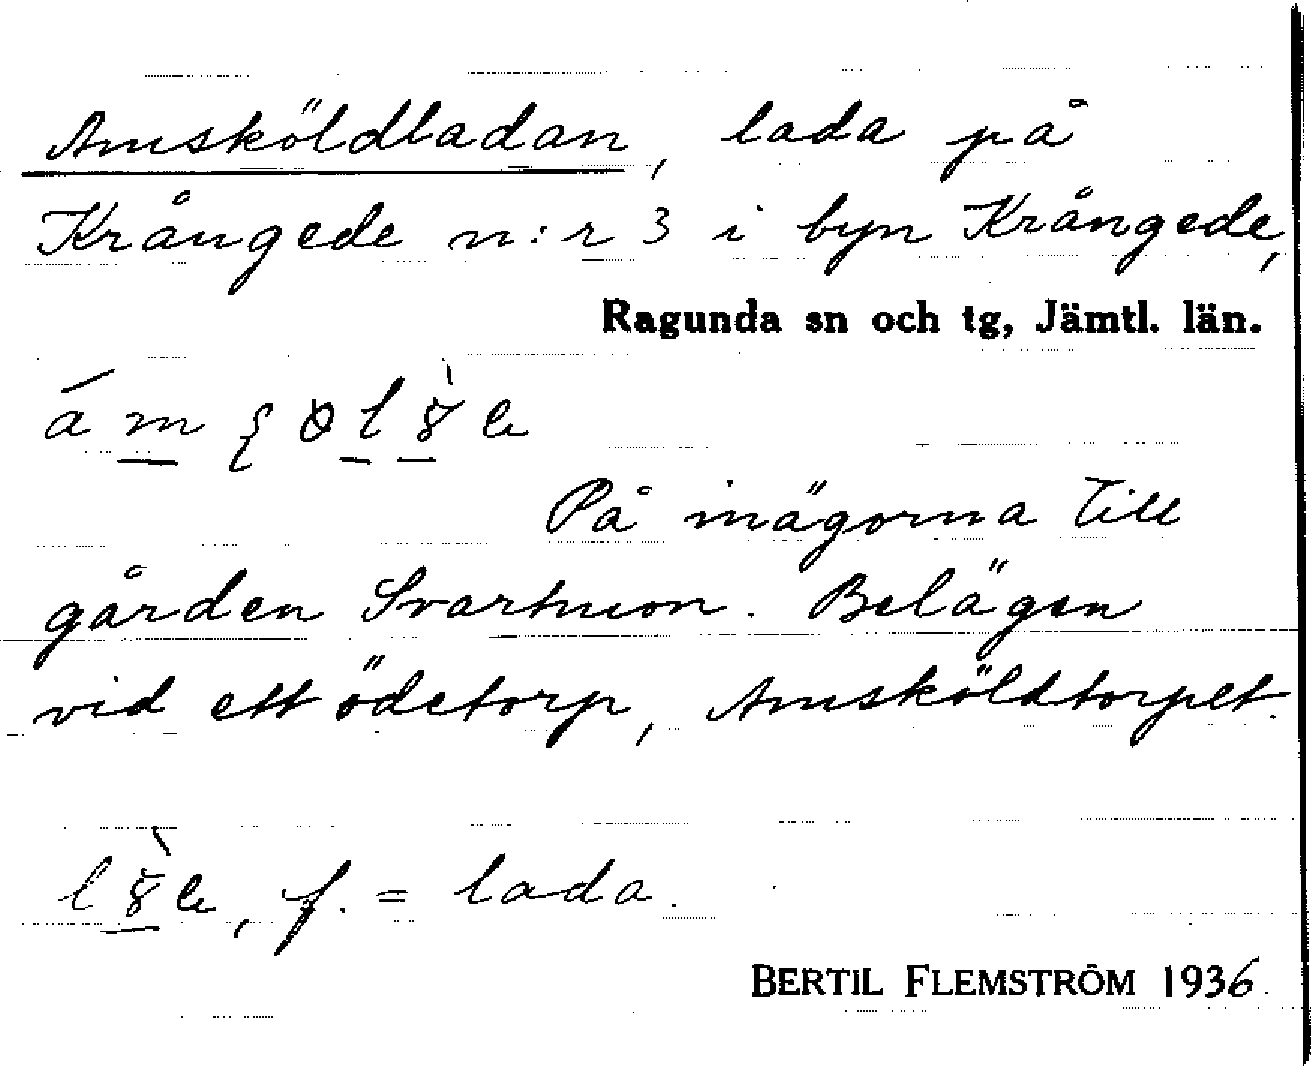 Amsköldladan, lada på
Krångede n:r 3 i byn Krångede,
Ragunda sn och tg, Jämtl. län.
På inägorna till
gården Svartmon. Belägen
vid ett ödetorp, Amsköldtorpet.
f. = lada.
BERTIL FLEMSTRÖM 1936.